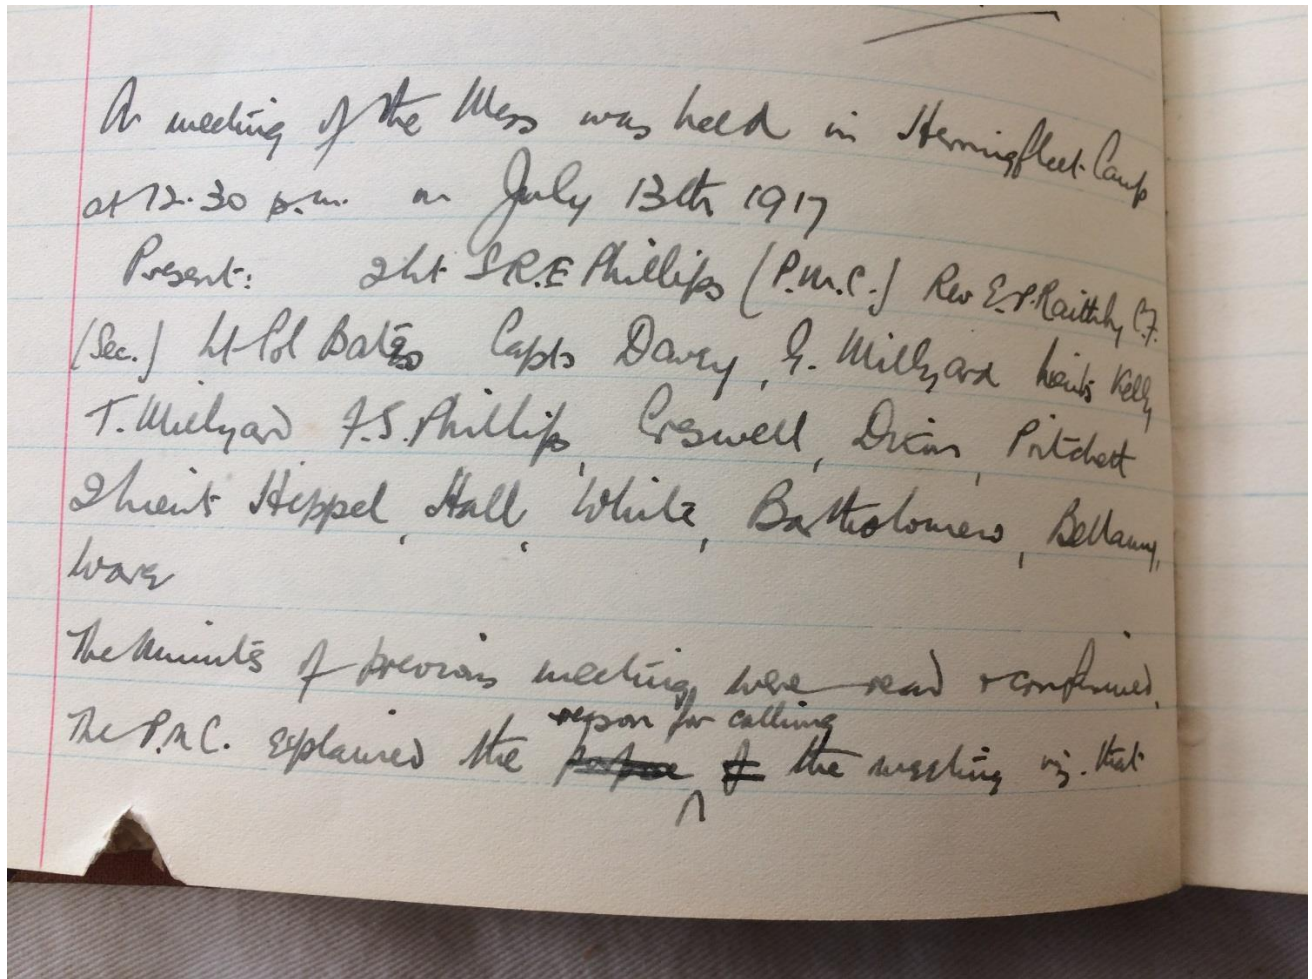 A meeting of the Mess was held in Herringfleet Camp
at 12.30 p.m. on July 13th 1917
Present: 2Lt S.R.E Phillips (P.M.C.) Rev E.P. C.F.
(Sec.) Lt-Col Bates Capts Davey, G. Millyard Lieuts Kelly
T. Millyard F.S. Phillips, Creswell, Dixon, Pritchett
2Lieuts Heppel, Hall, White, Bartholomew, Bellamy,
Ware
The Minutes of previous meeting were read & confirmed.
reason for calling
The P.M.C. explained the purpose of the meeting viz. that